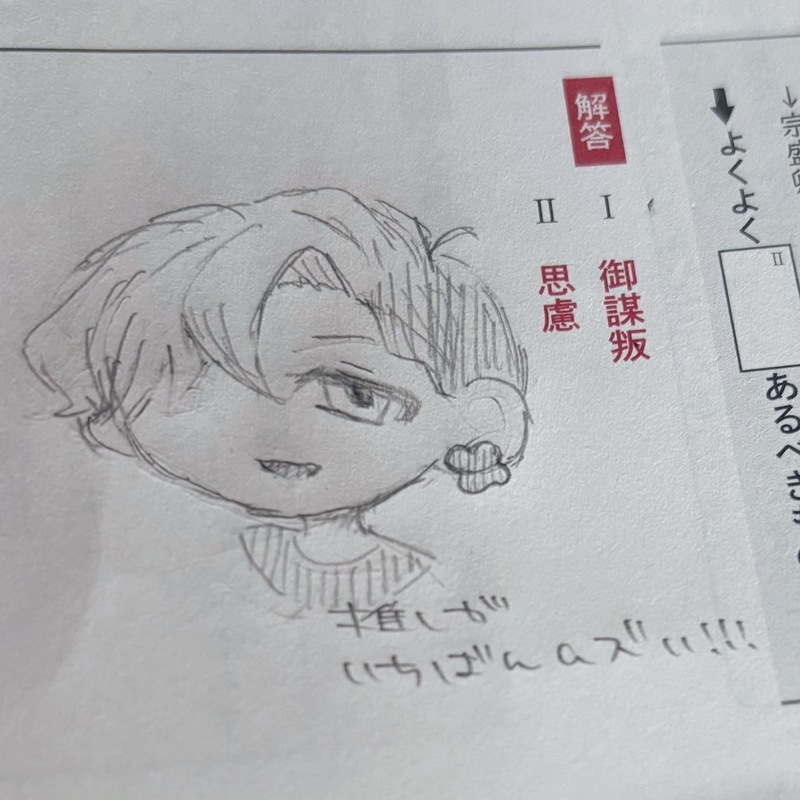 宗盛
よくよく
Ⅱ
あるべき
解答
Ⅰ 御謀叛
Ⅱ 思慮
推しが
いちばんaズい!!!